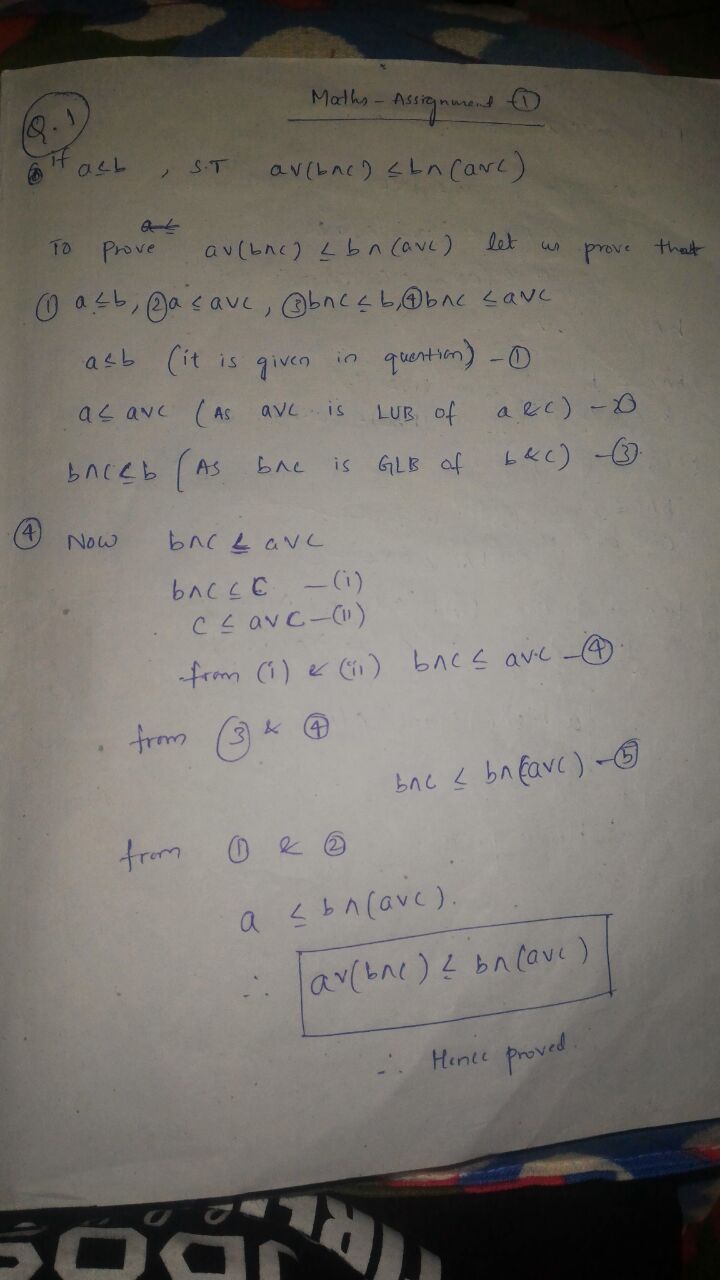 Maths - Assignment - ①
Q.1
if a≤b , S.T a∨(b∧c) ≤ b∧(a∨c)
To prove a∨(b∧c) ≤ b∧(a∨c) let us prove that
① a≤b, ② a≤a∨c, ③ b∧c≤b, ④ b∧c ≤a∨c
a≤b (it is given in question) - ①
a≤ a∨c (As a∨c is LUB of a & c) - ②
b∧c≤b (As b∧c is GLB of b & c) - ③
④ Now b∧c ≤ a∨c
b∧c ≤ c - (i)
c ≤ a∨c - (ii)
from (i) & (ii) b∧c ≤ a∨c - ④
from ③ & ④
b∧c ≤ b∧(a∨c) - ⑤
from ① & ②
a ≤ b∧(a∨c).
∴ a∨(b∧c) ≤ b∧(a∨c)
∴ Hence proved.